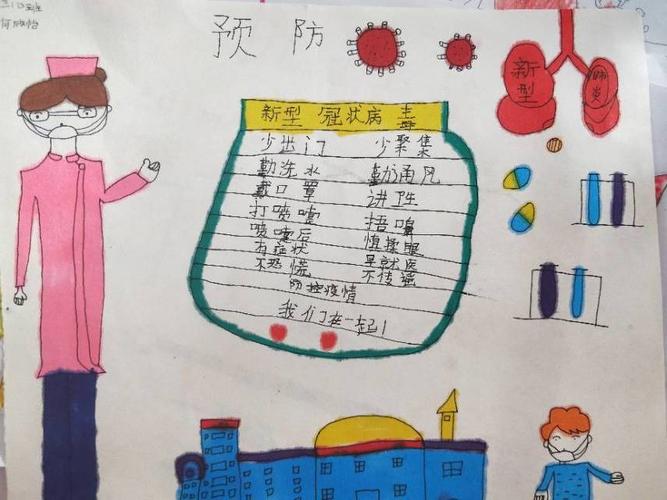 预 防
新型
肺炎
新型 冠状病 毒
少出门 少聚集
勤洗水 勤通风
戴口罩 讲卫生
打喷嚏 捂
喷嚏后 慎揉眼
有症状 早就医
不恐慌 不传谣
防控疫情
我们在一起!